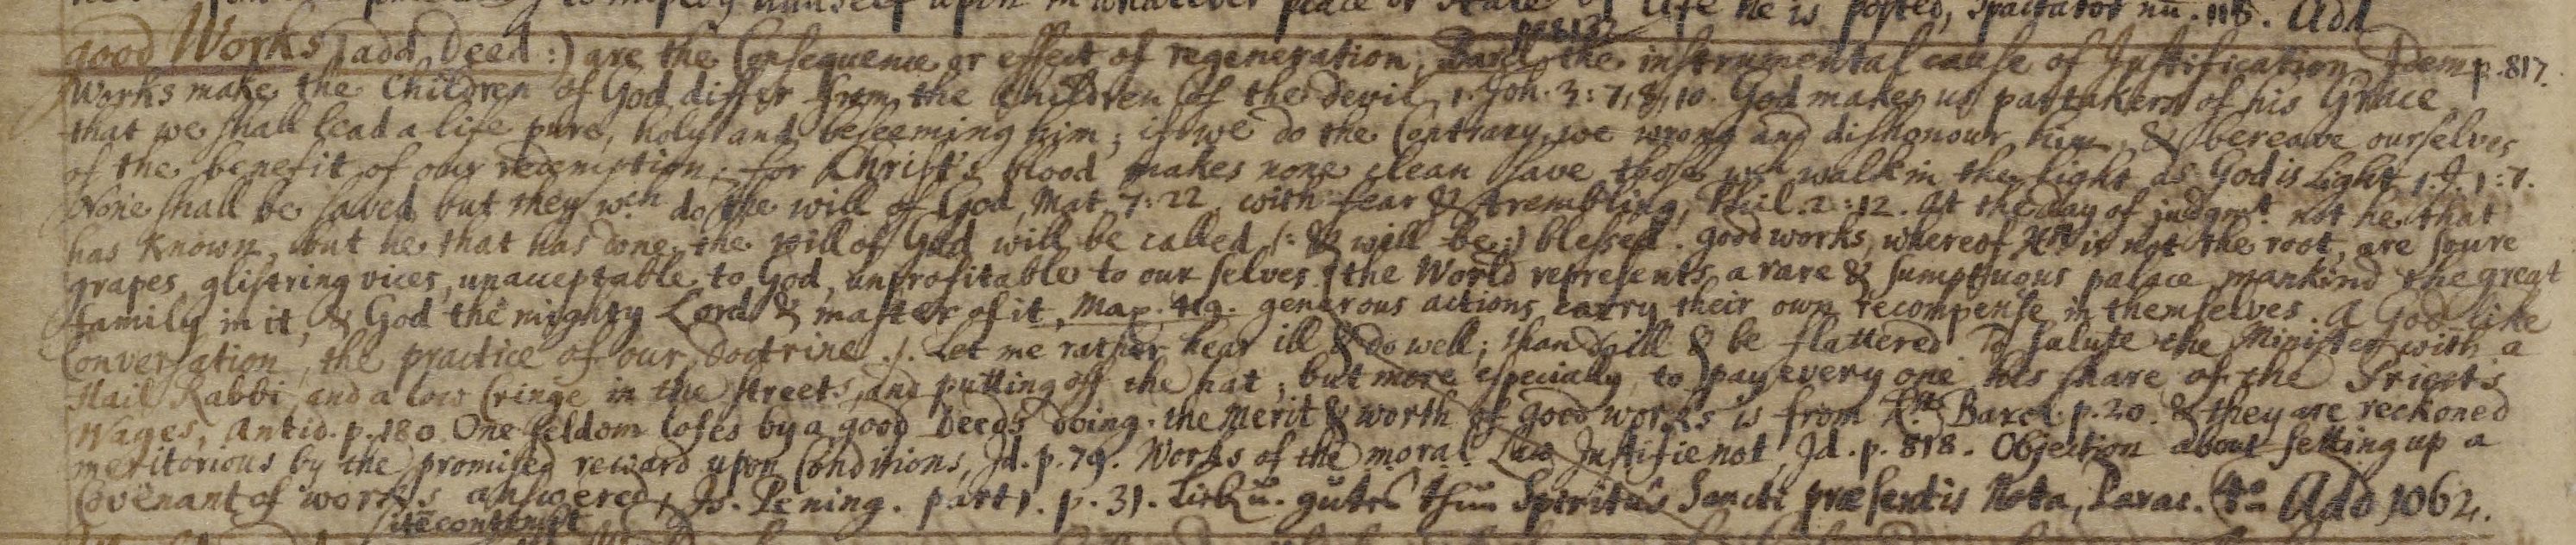 upon in whatever place or state of life he is posted, Spactator nū. 118. Add
good Works (add Deed:) are the Consequence or effect of regeneration, Barcl. p. 813? the instrumental cause of Justification Idem p. 817.
Works make the Children of God differ from the Children of the Devil, 1. Joh. 3: 7, 8, 10. God makes us partakers of his Grace
that we shall lead a life pure, holy and beseeming him; if we do the Contrary, we wrong and dishonour him, & bereave ourselves
of the benefit of our redemption; for Christ's blood makes none clean save those wch walk in the light as God is Light 1. J. 1: 7.
None shall be saved but they wch do the will of God, Mat. 7: 22, with fear & trembling, Phil. 2: 12. At the day of judgmt. not he that
has known, but he that has done the will of God will be called (: & will be :) blessed. good works, whereof Xst is not the root, are soure
grapes, glistring vices, unacceptable to God, unprofitable to our selves. (the World represents a rare & sumptuous palace, mankind the great
family in it, & God the mighty Lord & master of it, Map. 419. generous actions carry their own recompense in themselves. a God-like
Conversation, the practice of our Doctrine ./. Let me rather hear ill & do well; than do ill & be flattered. To salute the Minister with a
Hail Rabbi, and a low Cringe in the streets, and putting off the hat; but more especially to pay every one his share of the Priests
Wages, Antid. p. 180. One seldom loses by a good Deeds doing. the Merit & worth of good works is from Xst. Barcl. p. 20. & they are reckoned
meritorious by the promised reward upon Conditions, Id. p. 79. Works of the moral Law Justifie not, Id. p. 818. Objection about setting up a
Covenant of works answered, Is. Pening. part 1. p. 31. gutes thun Spiritûs Sancti præsentis Nota, Add 1062.